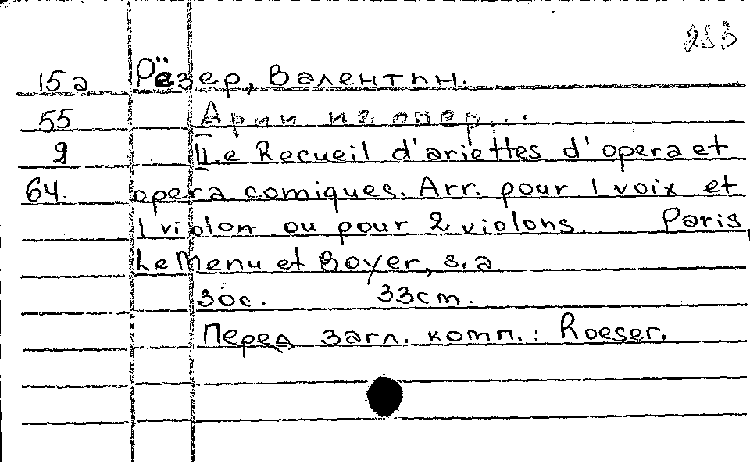 253
15а Рёзер, Валентин.
55 Арии из опер...
9 IIe Recueil d'ariettes d'opera et
64. opera comiques. Arr. pour 1 voix et
1 violon ou pour 2 violons. Paris,
Le Menu et Boyer, s.a
30с. 33cm.
Перед загл. комп.: Roeser.